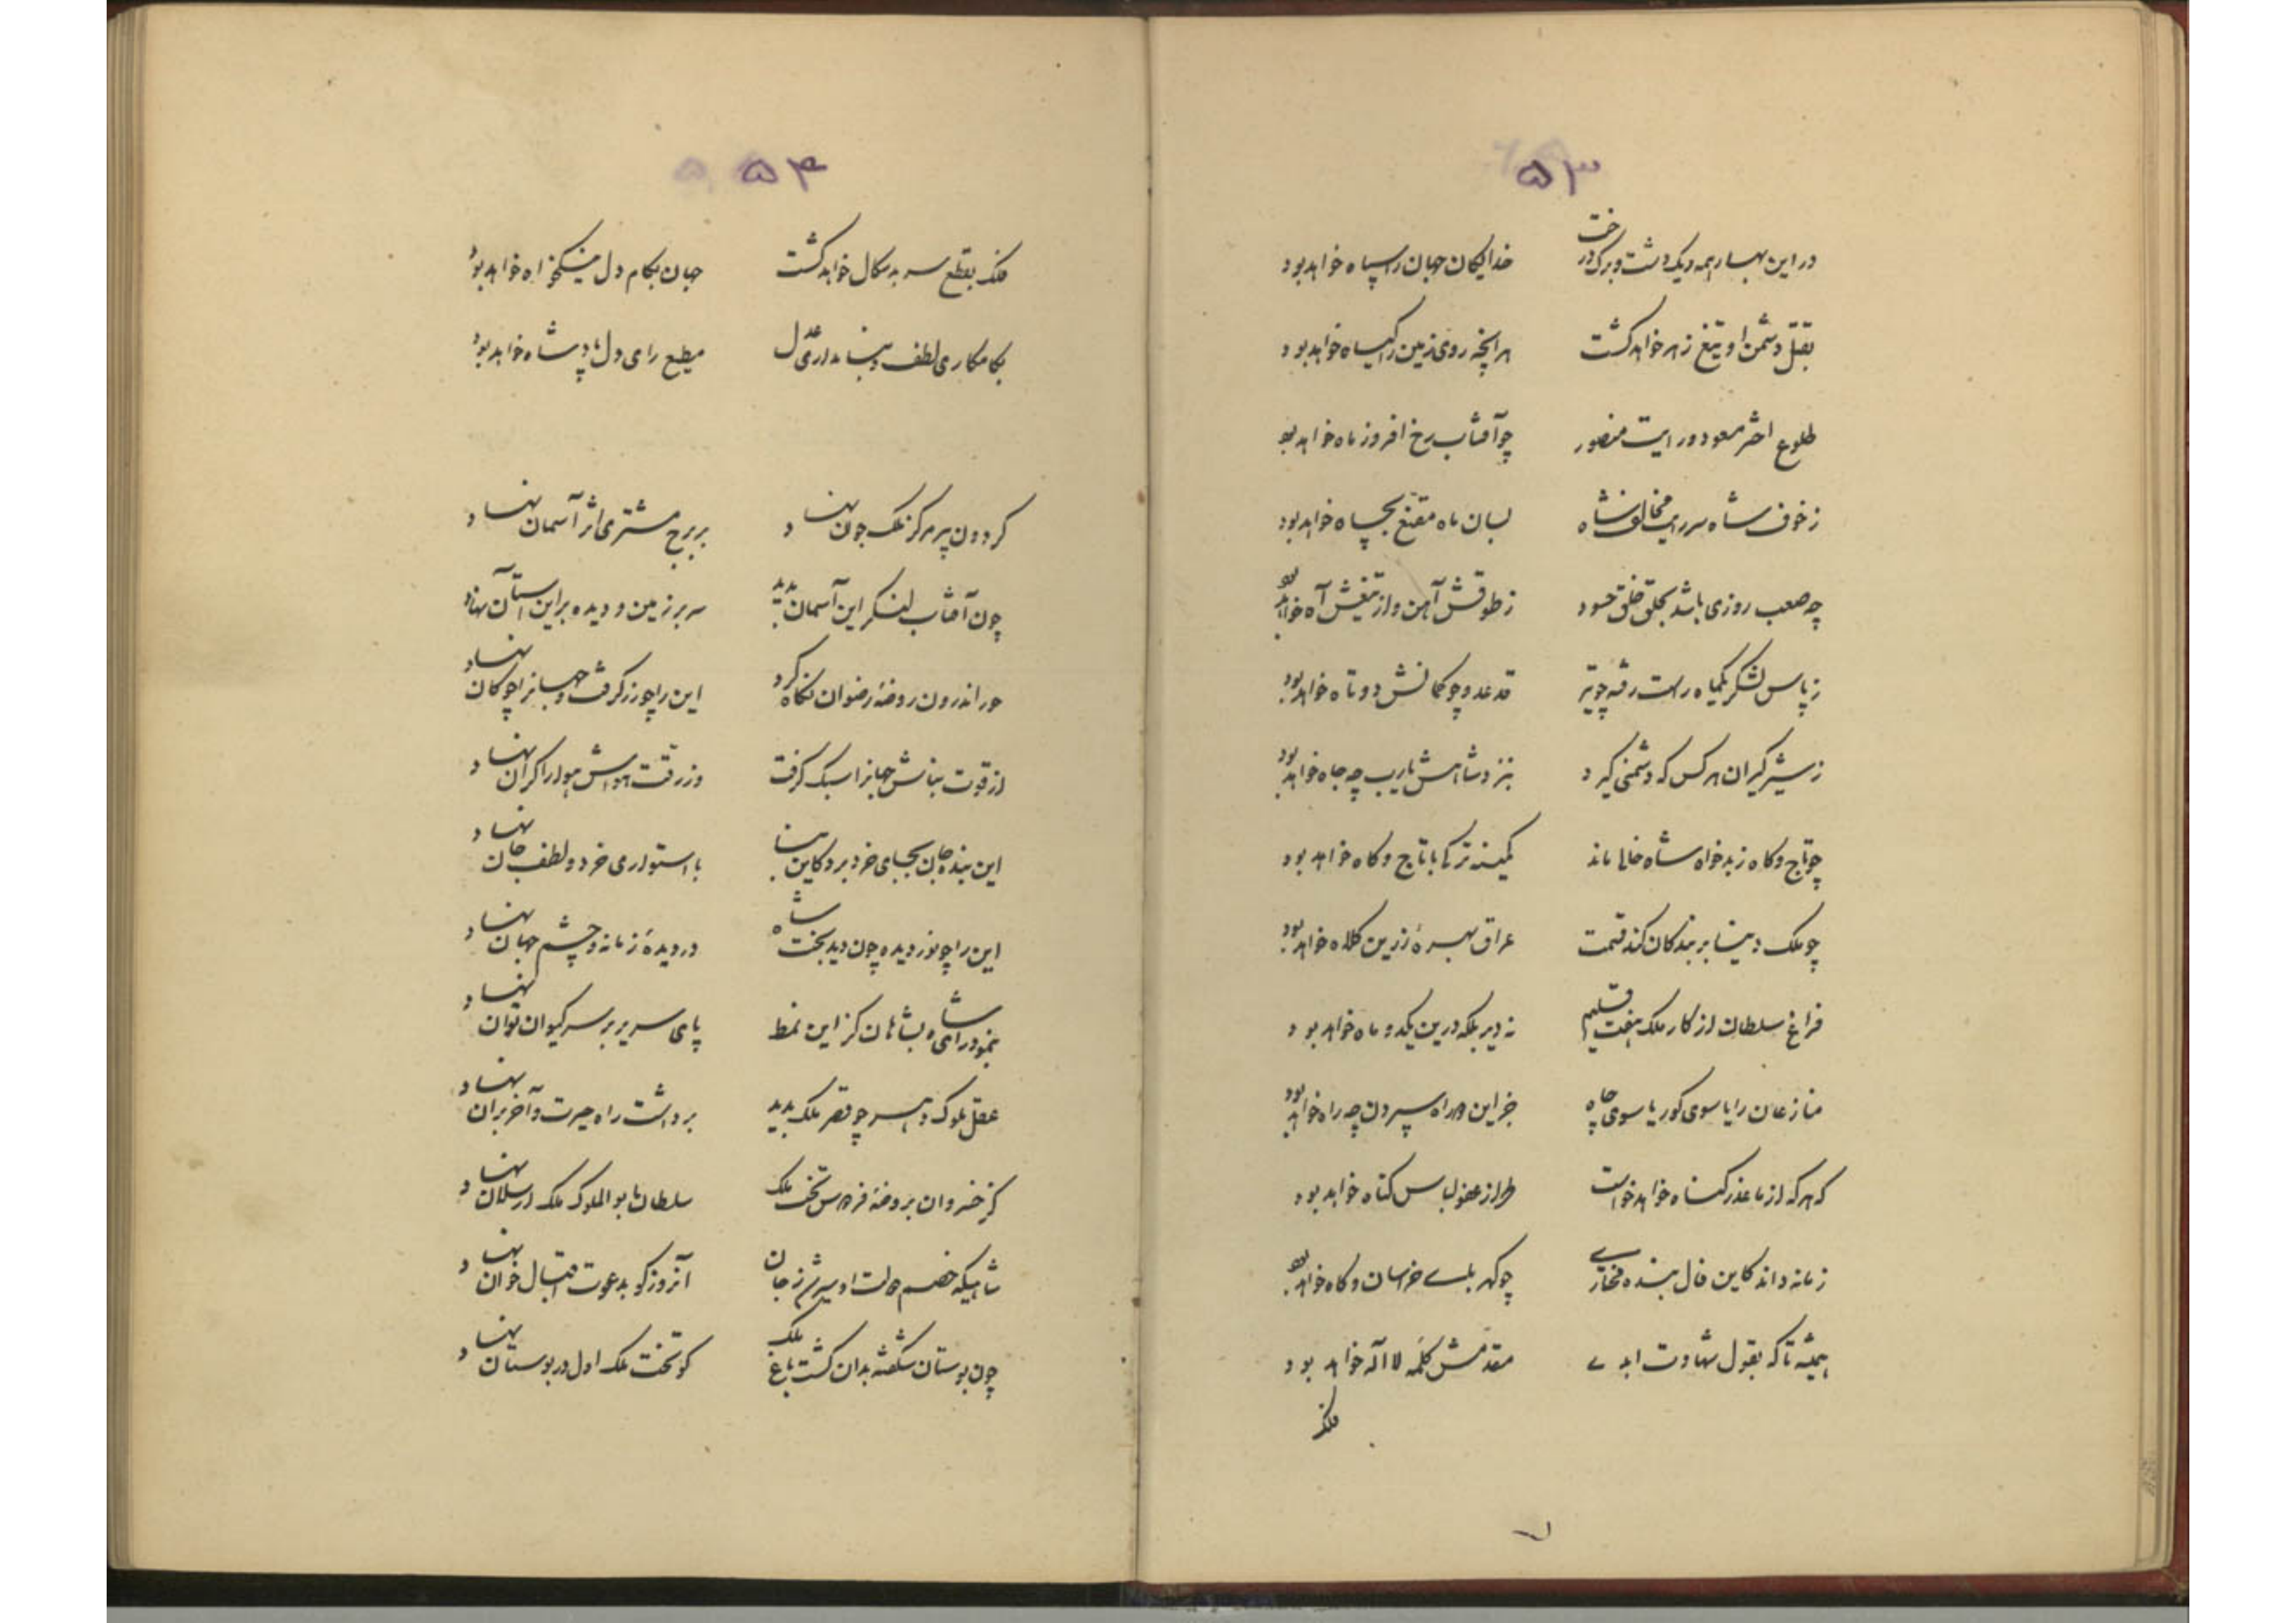 ۵۳
در این بهار همه ریک دشت و برک درخت خدایکان جهان را سپاه خواهد بود
بقتل دشمن او تیغ زهر خواهد کشت هر آنچه روی زمین را کیاه خواهد بود
طلوع اختر مسعود و رایت منصور چو آفتاب رخ افروز ماه خواهد بود
ز خوف شاه مخالف شاه بسان ماه مقنع بچاه خواهد بود
چه صعب روزی باشد بحلق خلق حسود ز طوقش آهن و از تیغش آه خواهد بود
ز پاس لشکر یکماه راست رفته چو تیر قد عدو چو کمانش دو تاه خواهد بود
ز شیر کیران هر کس که دشمنی کیرد بنزد شاهش یارب چه جاه خواهد بود
چو تاج و کاه ز بدخواه شاه خالی ماند کمینه ترک با تاج و کاه خواهد بود
چو ملک دنیا بر بندکان کند قسمت عراق بهره زرین کلاه خواهد بود
فراغ سلطان از کار ملک هفت اقلیم نه دیر بلکه درین یکدو ماه خواهد بود
منازعان را یا سوی کور یا سوی چاه جز این دو راه سپردن چه راه خواهد بود
که هر که از ما عذر کناه خواهد خواست طراز عفو لباس کناه خواهد بود
زمانه داند کاین فال بنده مختاری چو کهربای خراسان و کاه خواهد بود
همیشه تا که بقول شهادت ابدی مقدمش کلمه لا اله خواهد بود
فلک
۵۴
فلک بقطع سر بدسکال خواهد کشت جهان بکام دل نیکخواه خواهد بود
بکامکاری لطف و بنامداری عدل مطیع رای دل پادشاه خواهد بود
کردون پیر مرکز ملک جوان نهاد بر برج مشتری اثر آسمان نهاد
چون آفتاب لشکر این آسمان بدید سر بر زمین و دیده بر این آستان نهاد
حور اندرون روضه رضوان نکاه کرد این را چو زر کرفت و جهانرا چو کان نهاد
از قوت بناش جهانرا سبک کرفت وز رقت هواش هوا را کران نهاد
این بنده جان بجای خرد برد کاین بنا با استواری خرد و لطف جان نهاد
این را چو نور دیده چون دید بخت شاه در دیده زمانه و چشم جهان نهاد
بنمود رای شاه بشاهان کز این نمط پای سریر بر سر کیوان توان نهاد
عقل ملوک دهر چو قصر ملک بدید برداشت راه حیرت و آخر بران نهاد
کز خسروان بروضه فردوس تخت ملک سلطان ابوالملوک ملک ارسلان نهاد
شاهیکه خصم دولت او سیر شد ز جان آنروز کو بدعوت اقبال خوان نهاد
چون بوستان شکفته بدان کشت باغ ملک کو تخت ملک اول در بوستان نهاد